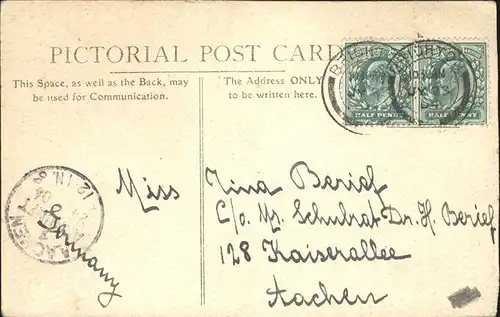 PICTORIAL POST CARD
This Space, as well as the Back, may
be used for Communication.
The Address ONLY
to be written here.
HALF PENNY
HALF PENNY
Miss Tina Berief
C/o Mr. Schulrat Dr. H. Berief
128 Kaiserallee
Aachen
Germany
AACHEN